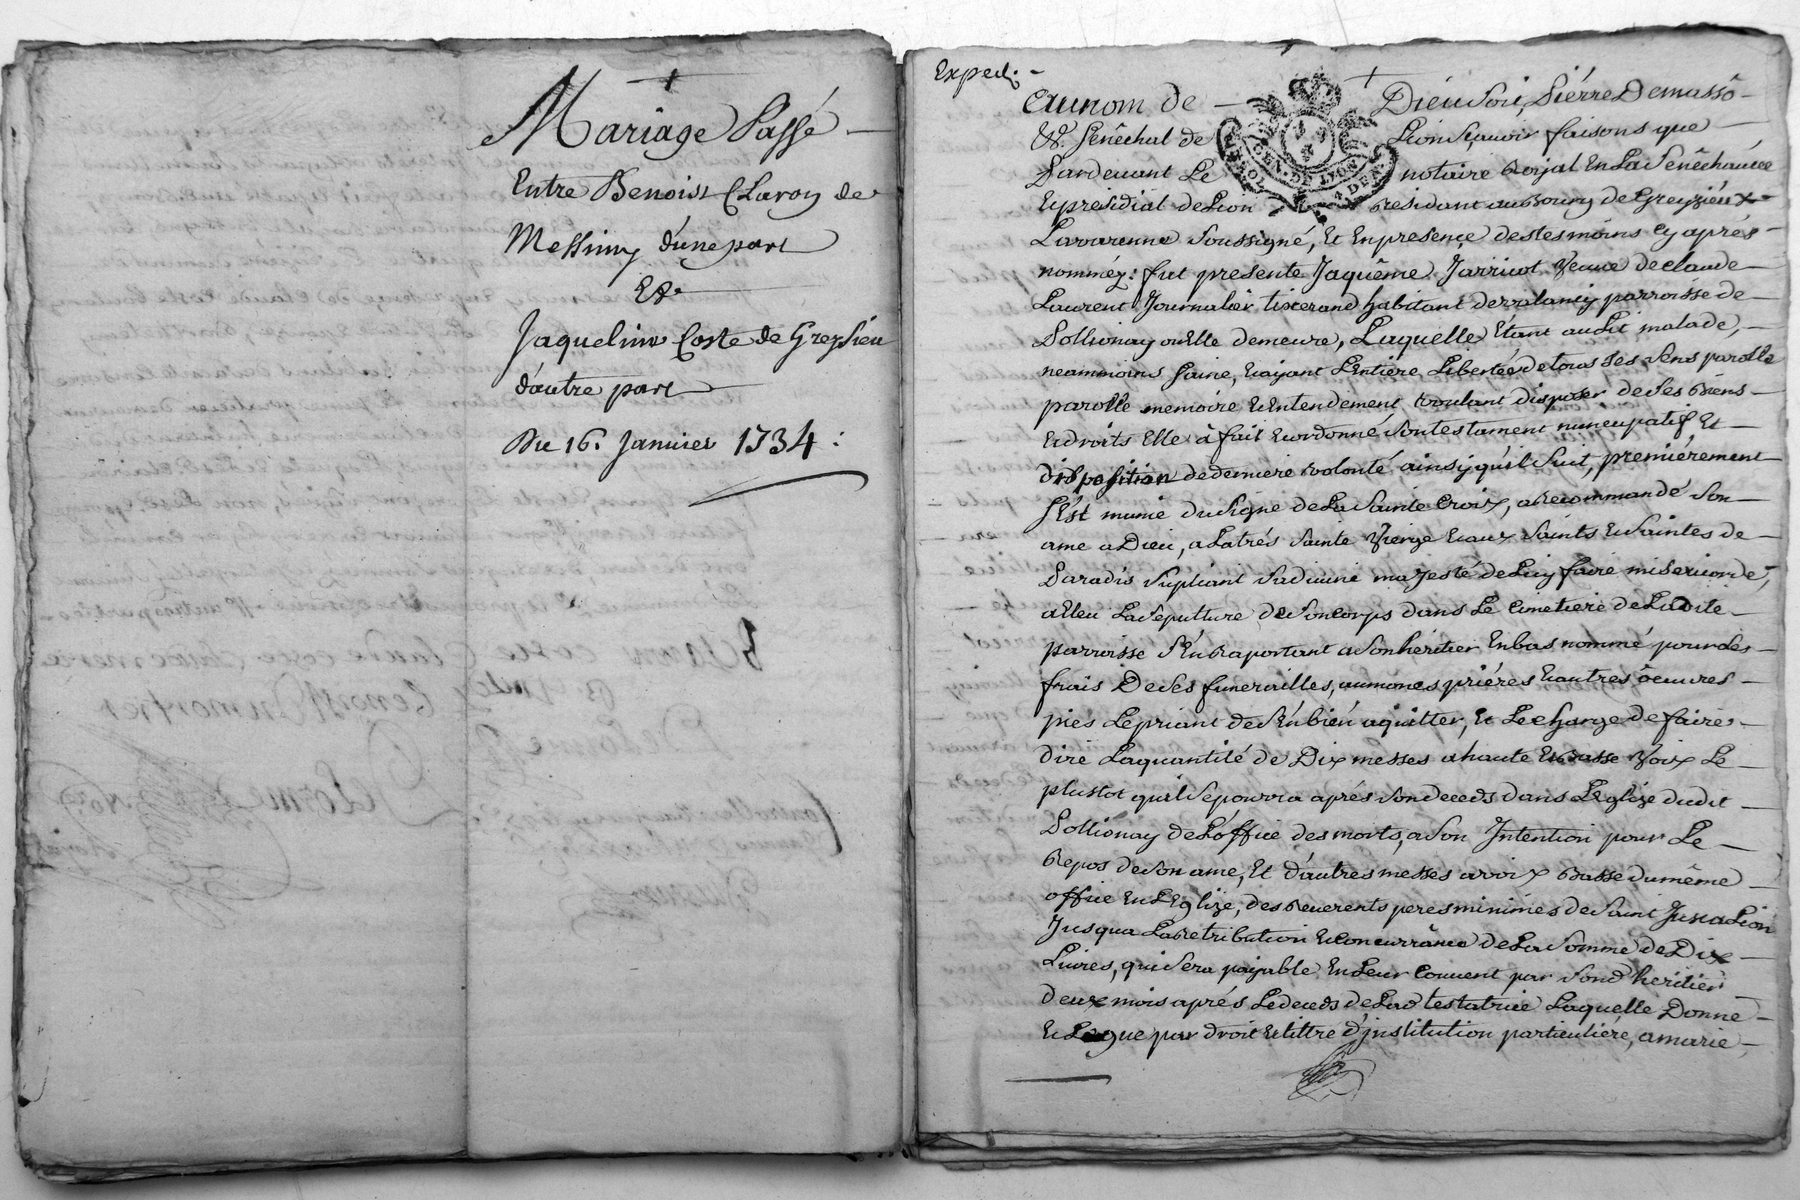 Mariage Passé
Entre Benoist Claron de
Messimy d'une part
Et
Jaqueline Coste de Greysieu
d'autre part
Du 16. Janvier 1734 :
Expedi.
Au nom de Dieu soit, Pierre Demasso
Sr. Senêchal de Lion Scavoir faisons que
Pardevant Le notaire Roijal En La Senêchaucée
Et presidial de Lion Residant au Bourg de Greyzieux
Lavarenne soussigné, Et En presence des tesmoins cy aprés
nomméz: fut presente Jaquême Jarricot Veuve de claude
Laurent Journalier tixerand habitant de valancy parroisse de
Pollionay ou Elle demeure, Laquelle Etant au Lit malade,
neammoins Saine, Et ayant L'Entiére Libertée de tous ses sens parolle
parolle memoire Et Entendement voulant disposer de ses Biens
Et droits Elle à fait Et ordonné son testament nuncupatif Et
disposition de derniere volonté ainsÿ qu'il suit, premiérement
s'Est munie du Signe de La Sainte Croix, a Recommandé son
ame a Dieu, a La trés Sainte Vierge Et aux Saints Et Saintes de
Paradis supliant sa divine majesté de Luy faire misericorde,
a Eleu La sepulture de son corps dans Le Cimetiere de La dite
parroisse s'En Raportant a son héritier En bas nommé pour les
frais De ses funerailles, aumones priéres Et autres oeuvres
pies Le priant de s'En bien aquitter, Et Le charge de faire
dire La quantité de Dix messes a haute Et Basse Voix Le
plustot qu'il se pourra aprés son deceds dans L'Eglize dudit
Pollionay de L'office des morts, a son Intention pour Le
Repos de son ame, Et d'autres messes a voix Basse du même
office En L'Eglize, des Reverents peres minimes de Saint Just a Lion
Jusqua La Retribution Et concurrance de La Somme de Dix
Livres, qui sera payable En Leur Couvent par sond heritier
deux mois aprés Le deceds de Lad testatrice Laquelle Donne
Et Legue par droit Et tittre d'institution particuliére, a marie